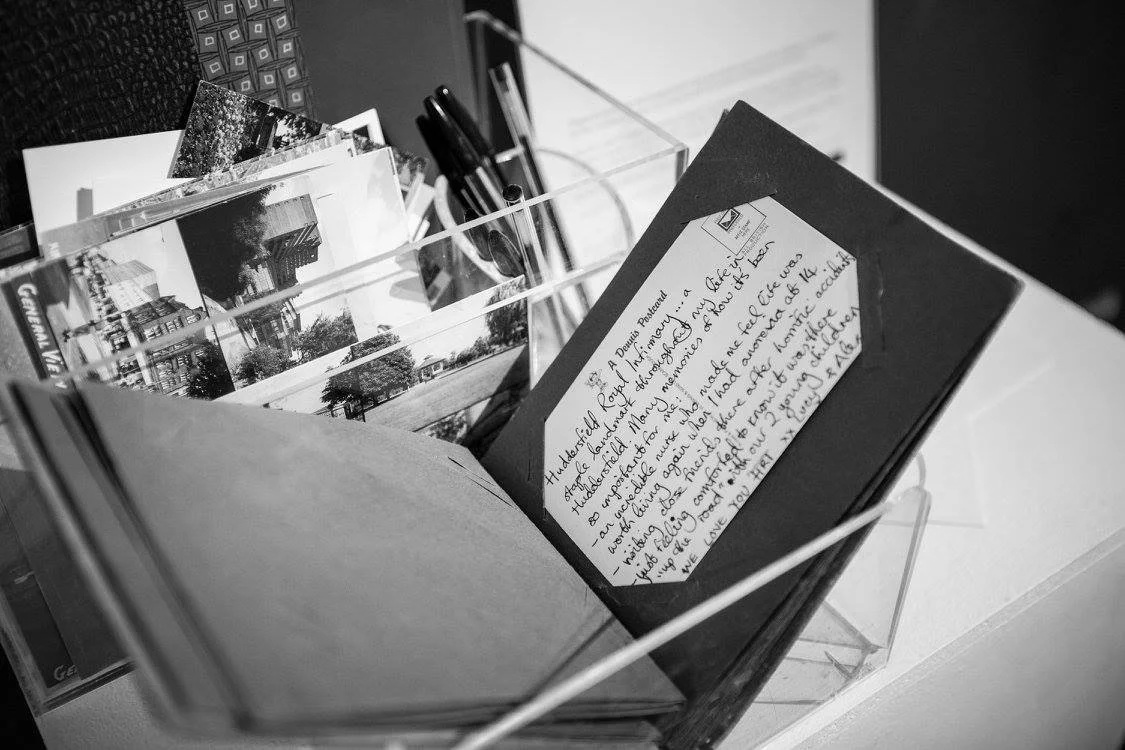 GENERAL VIE
A Dennis Postcard
Huddersfield Royal Infirmary....a
staple landmark throughout my life in
Huddersfield. Many memories of how it's been
so important for me:
- an incredible nurse who made me feel life was
worth living again when I had anorexia at 14.
- visiting close friends there after horrific accidents
- just feeling comforted to know it was there
"up the road" with our 2 young children
WE LOVE YOU HRI xx Lucy & Alex
GE